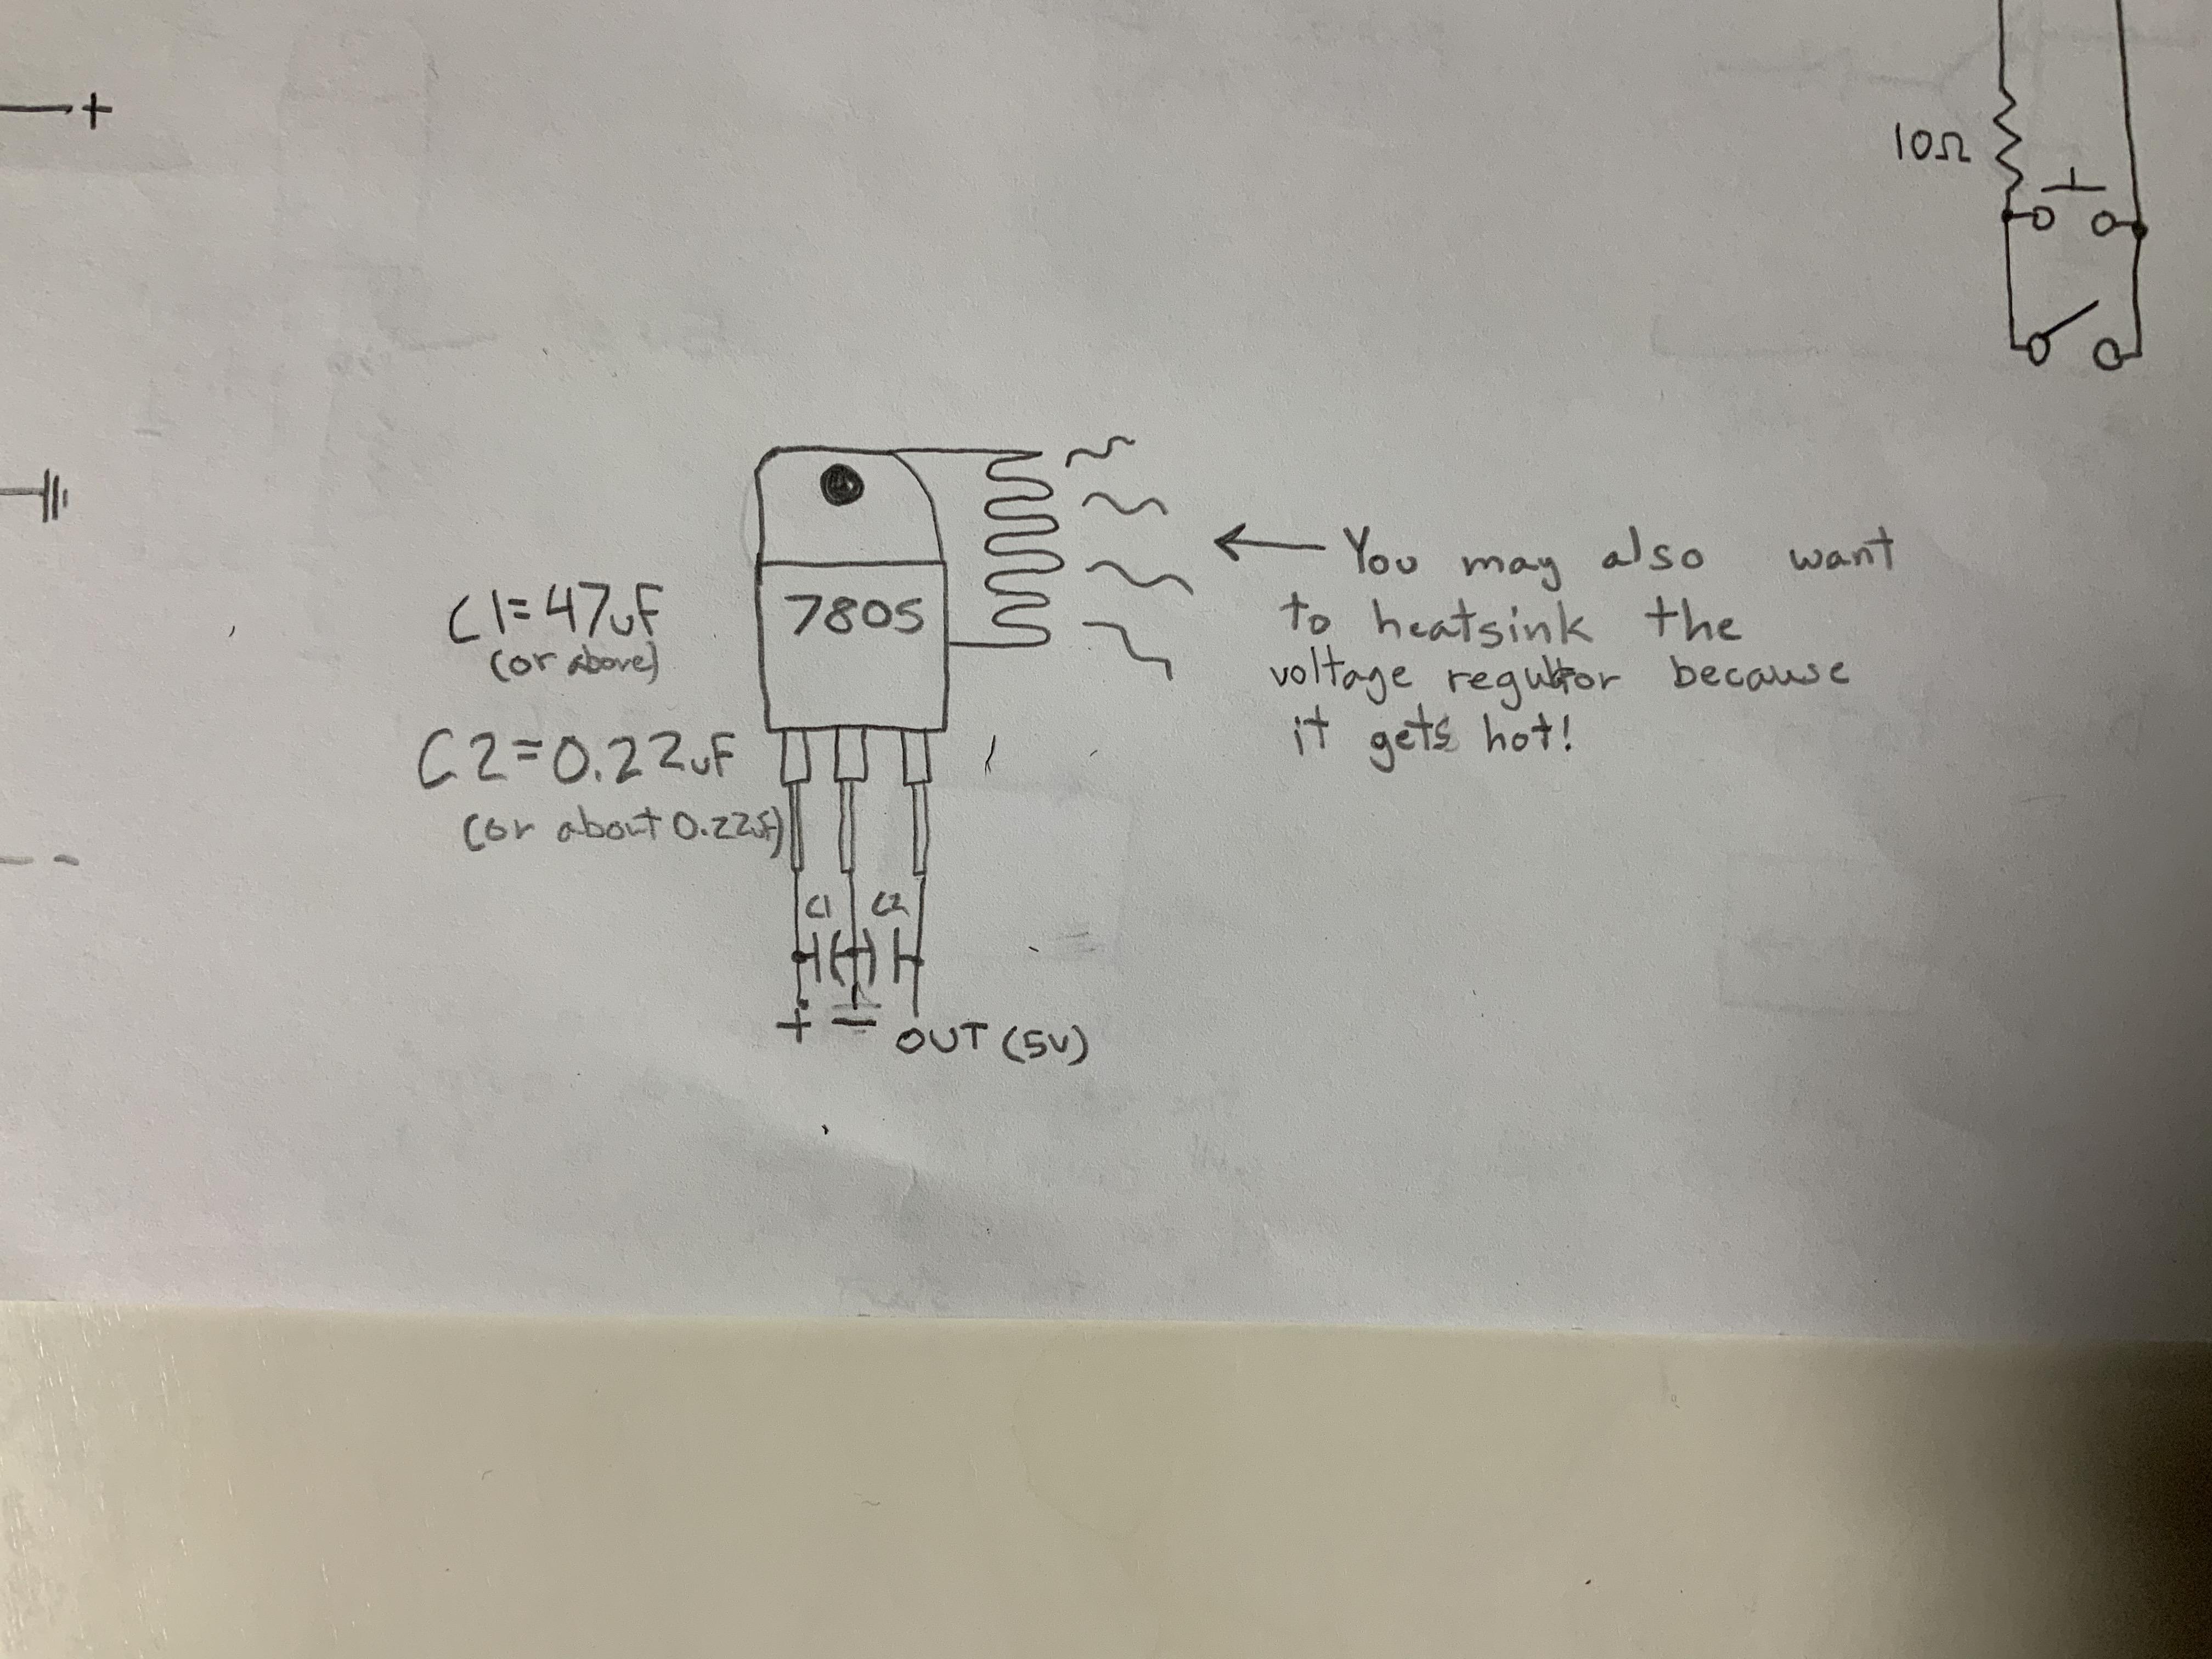 +
10Ω
7805
C1=47uF
(or above)
C2=0.22uF
(or about 0.22uF)
← You may also want
to heatsink the
voltage regulator because
it gets hot!
C1 C2
+ − OUT (5V)